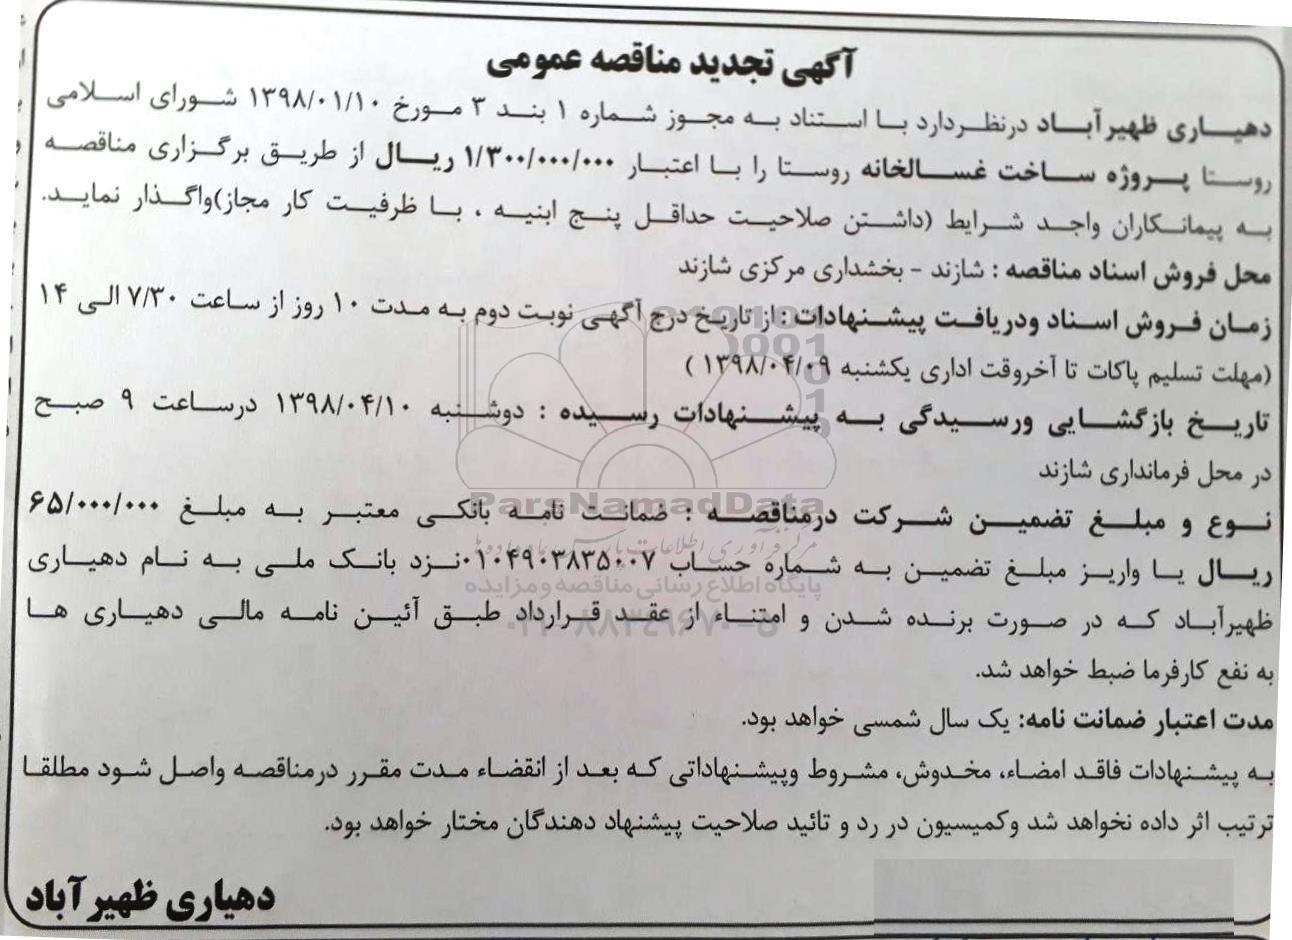 آگهی تجدید مناقصه عمومی
دهیاری ظهیرآباد درنظردارد با استناد به مجوز شماره ۱ بند ۳ مورخ ۱۳۹۸/۰۱/۱۰ شورای اسلامی
روستا پروژه ساخت غسالخانه روستا را با اعتبار ۱/۳۰۰/۰۰۰/۰۰۰ ریال از طریق برگزاری مناقصه
به پیمانکاران واجد شرایط (داشتن صلاحیت حداقل پنج ابنیه ، با ظرفیت کار مجاز)واگذار نماید.
محل فروش اسناد مناقصه : شازند - بخشداری مرکزی شازند
زمان فروش اسناد ودریافت پیشنهادات : از تاریخ درج آگهی نوبت دوم به مدت ۱۰ روز از ساعت ۷/۳۰ الی ۱۴
(مهلت تسلیم پاکات تا آخروقت اداری یکشنبه ۱۳۹۸/۰۴/۰۹ )
تاریخ بازگشایی ورسیدگی به پیشنهادات رسیده : دوشنبه ۱۳۹۸/۰۴/۱۰ درساعت ۹ صبح
در محل فرمانداری شازند
ParsNamadData
نوع و مبلغ تضمین شرکت درمناقصه : ضمانت نامه بانکی معتبر به مبلغ ۶۵/۰۰۰/۰۰۰
ریال یا واریز مبلغ تضمین به شماره حساب ۰۱۰۴۹۰۳۸۳۵۰۰۷نزد بانک ملی به نام دهیاری
پایگاه اطلاع رسانی مناقصه و مزایده
ظهیرآباد که در صورت برنده شدن و امتناء از عقد قرارداد طبق آئین نامه مالی دهیاری ها
۰۲۱-۸۸۳۴۹۶۷۰-۵
به نفع کارفرما ضبط خواهد شد.
مدت اعتبار ضمانت نامه: یک سال شمسی خواهد بود.
به پیشنهادات فاقد امضاء، مخدوش، مشروط وپیشنهاداتی که بعد از انقضاء مدت مقرر درمناقصه واصل شود مطلقا
ترتیب اثر داده نخواهد شد وکمیسیون در رد و تائید صلاحیت پیشنهاد دهندگان مختار خواهد بود.
دهیاری ظهیرآباد